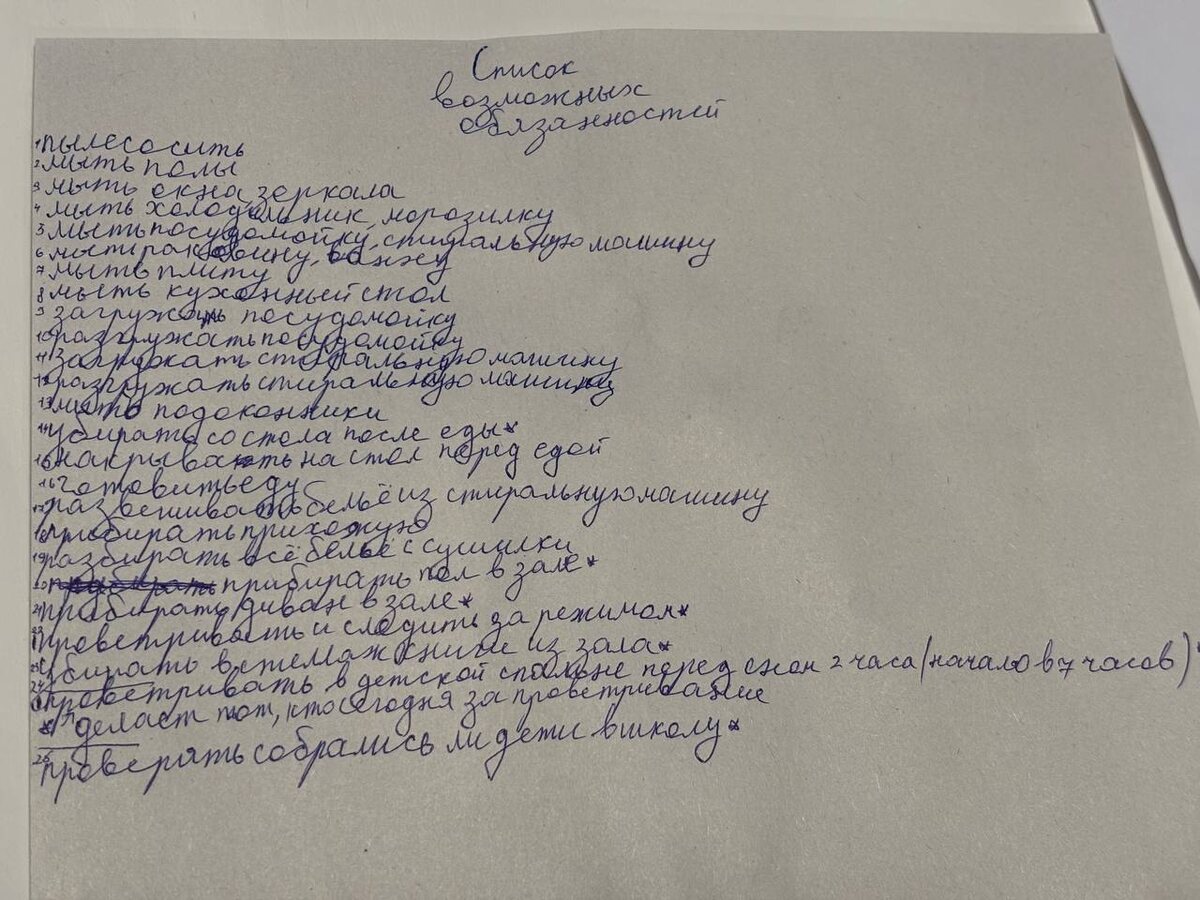 Список
возможных
обязанностей
1 пылесосить
2 мыть полы
3 мыть окна, зеркала
4 мыть холодильник, морозилку
5 мыть посудомойку, стиральную машину
6 мыть раковину, ванну
7 мыть плиту
8 мыть кухонный стол
9 загружать посудомойку
10 разгружать посудомойку
11 загружать стиральную машину
12 разгружать стиральную машину
13 мыть подоконники
14 убирать со стола после еды*
15 накрывать на стол перед едой
16 готовить еду
17 развешивать бельё из стиральную машину
18 прибирать прихожую
19 разбирать всё бельё с сушилки
20 прибирать пол в зале*
21 прибирать диван в зале*
22 проветривать и следить за режимом*
23 убирать вигвам книги из зала*
24 проветривать в детской спальне перед сном 2 часа (начало в 7 часов)*
* делает тот, кто сегодня за проветривание
25 проверять собрались ли дети в школу*